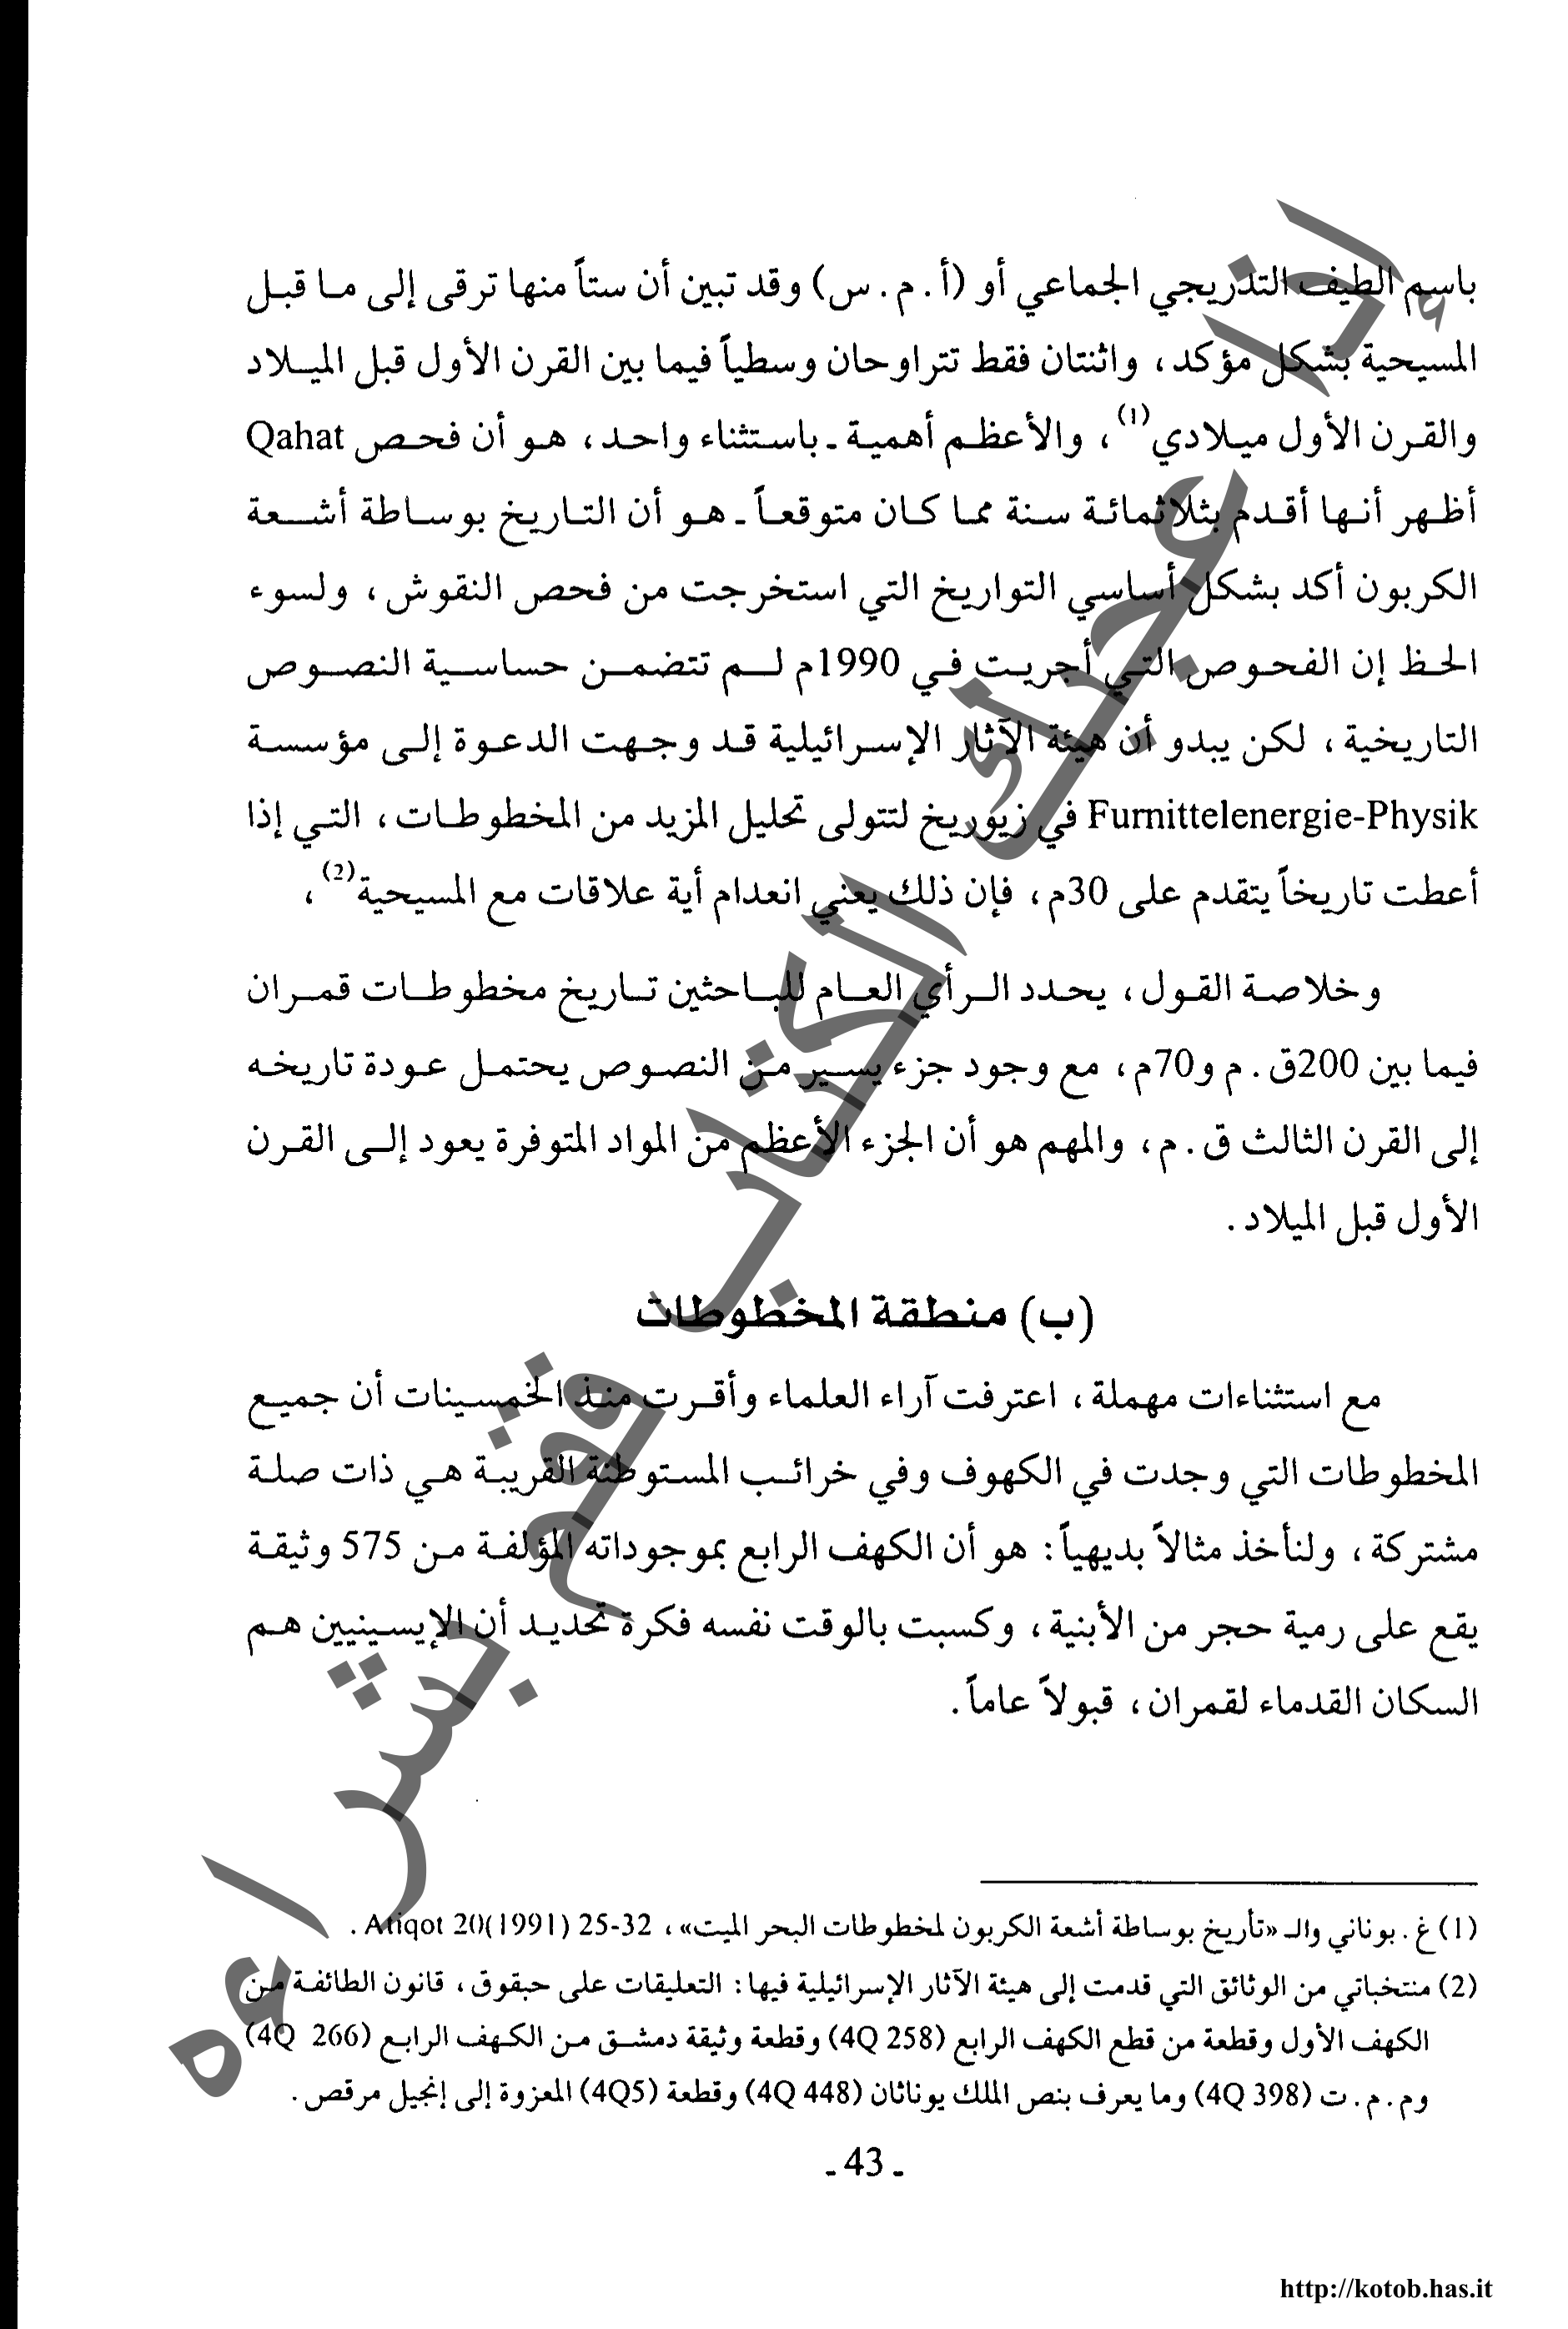 باسم الطيف التدريجي الجماعي أو (أ. م. س) وقد تبين أن ستاً منها ترقى إلى ما قبل
المسيحية بشكل مؤكد، واثنتان فقط تتراوحان وسطياً فيما بين القرن الأول قبل الميلاد
والقرن الأول ميلادي(1)، والأعظم أهمية ـ باستثناء واحد، هو أن فحص Qahat
أظهر أنها أقدم بثلاثمائة سنة مما كان متوقعاً ـ هو أن التاريخ بوساطة أشعة
الكربون أكد بشكل أساسي التواريخ التي استخرجت من فحص النقوش، ولسوء
الحظ إن الفحوص التي أجريت في 1990م لم تتضمن حساسية النصوص
التاريخية، لكن يبدو أن هيئة الآثار الإسرائيلية قد وجهت الدعوة إلى مؤسسة
Furnittelenergie-Physik في زيوريخ لتتولى تحليل المزيد من المخطوطات، التي إذا
أعطت تاريخاً يتقدم على 30م، فإن ذلك يعني انعدام أية علاقات مع المسيحية(2)،
وخلاصة القول، يحدد الرأي العام للباحثين تاريخ مخطوطات قمران
فيما بين 200ق. م و70م، مع وجود جزء يسير من النصوص يحتمل عودة تاريخه
إلى القرن الثالث ق. م، والمهم هو أن الجزء الأعظم من المواد المتوفرة يعود إلى القرن
الأول قبل الميلاد.
(ب) منطقة المخطوطات
مع استثناءات مهملة، اعترفت آراء العلماء وأقرت منذ الخمسينات أن جميع
المخطوطات التي وجدت في الكهوف وفي خرائب المستوطنة القريبة هي ذات صلة
مشتركة، ولنأخذ مثالاً بديهياً: هو أن الكهف الرابع بموجوداته المؤلفة من 575 وثيقة
يقع على رمية حجر من الأبنية، وكسبت بالوقت نفسه فكرة تحديد أن الإيسينيين هم
السكان القدماء لقمران، قبولاً عاماً.
(1) غ. بوناني والـ «تأريخ بوساطة أشعة الكربون لمخطوطات البحر الميت»، Atiqot 20(1991) 25-32.
(2) منتخباتي من الوثائق التي قدمت إلى هيئة الآثار الإسرائيلية فيها: التعليقات على حبقوق، قانون الطائفة من
الكهف الأول وقطعة من قطع الكهف الرابع (4Q 258) وقطعة وثيقة دمشق من الكهف الرابع (4Q 266)
وم. م. ت (4Q 398) وما يعرف بنص الملك يوناثان (4Q 448) وقطعة (4Q5) المعزوة إلى إنجيل مرقص.
ـ 43 ـ
إذا أعجبك الكتاب فقم بشراءه
http://kotob.has.it